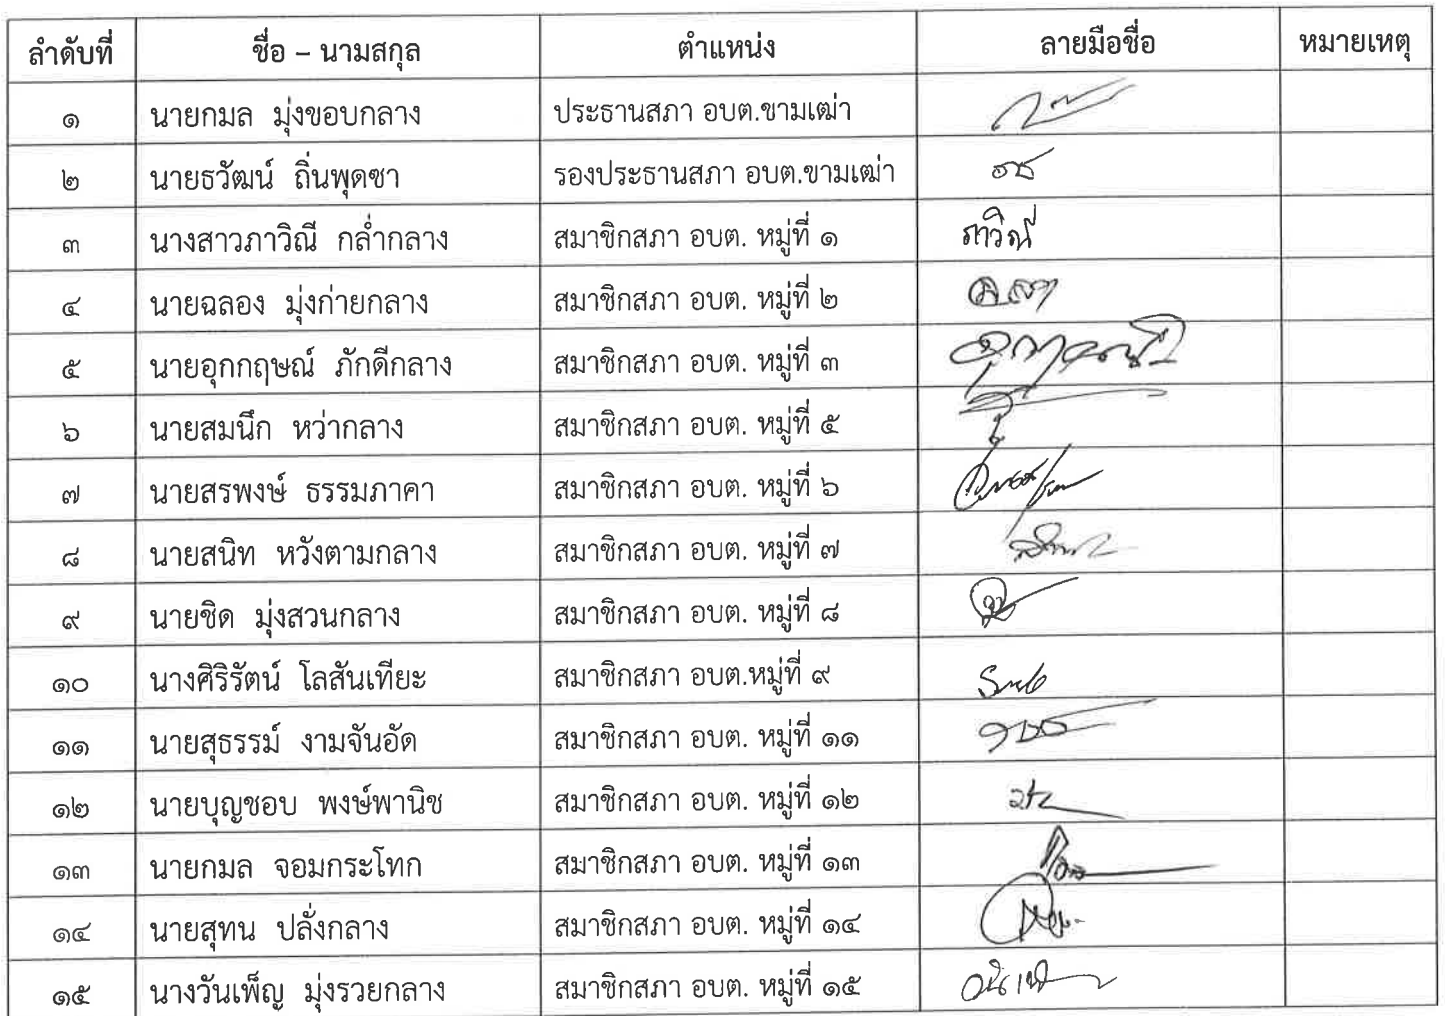 ลำดับที่ ชื่อ – นามสกุล ตำแหน่ง ลายมือชื่อ หมายเหตุ
๑ นายกมล มุ่งขอบกลาง ประธานสภา อบต.ขามเฒ่า
๒ นายธวัฒน์ ถิ่นพุดซา รองประธานสภา อบต.ขามเฒ่า
๓ นางสาวภาวิณี กล่ำกลาง สมาชิกสภา อบต. หมู่ที่ ๑ ภาวิณี
๔ นายฉลอง มุ่งก่ายกลาง สมาชิกสภา อบต. หมู่ที่ ๒
๕ นายอุกกฤษณ์ ภักดีกลาง สมาชิกสภา อบต. หมู่ที่ ๓
๖ นายสมนึก หว่ากลาง สมาชิกสภา อบต. หมู่ที่ ๕
๗ นายสรพงษ์ ธรรมภาคา สมาชิกสภา อบต. หมู่ที่ ๖
๘ นายสนิท หวังตามกลาง สมาชิกสภา อบต. หมู่ที่ ๗
๙ นายชิด มุ่งสวนกลาง สมาชิกสภา อบต. หมู่ที่ ๘
๑๐ นางศิริรัตน์ โลสันเทียะ สมาชิกสภา อบต.หมู่ที่ ๙
๑๑ นายสุธรรม์ งามจันอัด สมาชิกสภา อบต. หมู่ที่ ๑๑
๑๒ นายบุญชอบ พงษ์พานิช สมาชิกสภา อบต. หมู่ที่ ๑๒
๑๓ นายกมล จอมกระโทก สมาชิกสภา อบต. หมู่ที่ ๑๓
๑๔ นายสุทน ปลั่งกลาง สมาชิกสภา อบต. หมู่ที่ ๑๔
๑๕ นางวันเพ็ญ มุ่งรวยกลาง สมาชิกสภา อบต. หมู่ที่ ๑๕